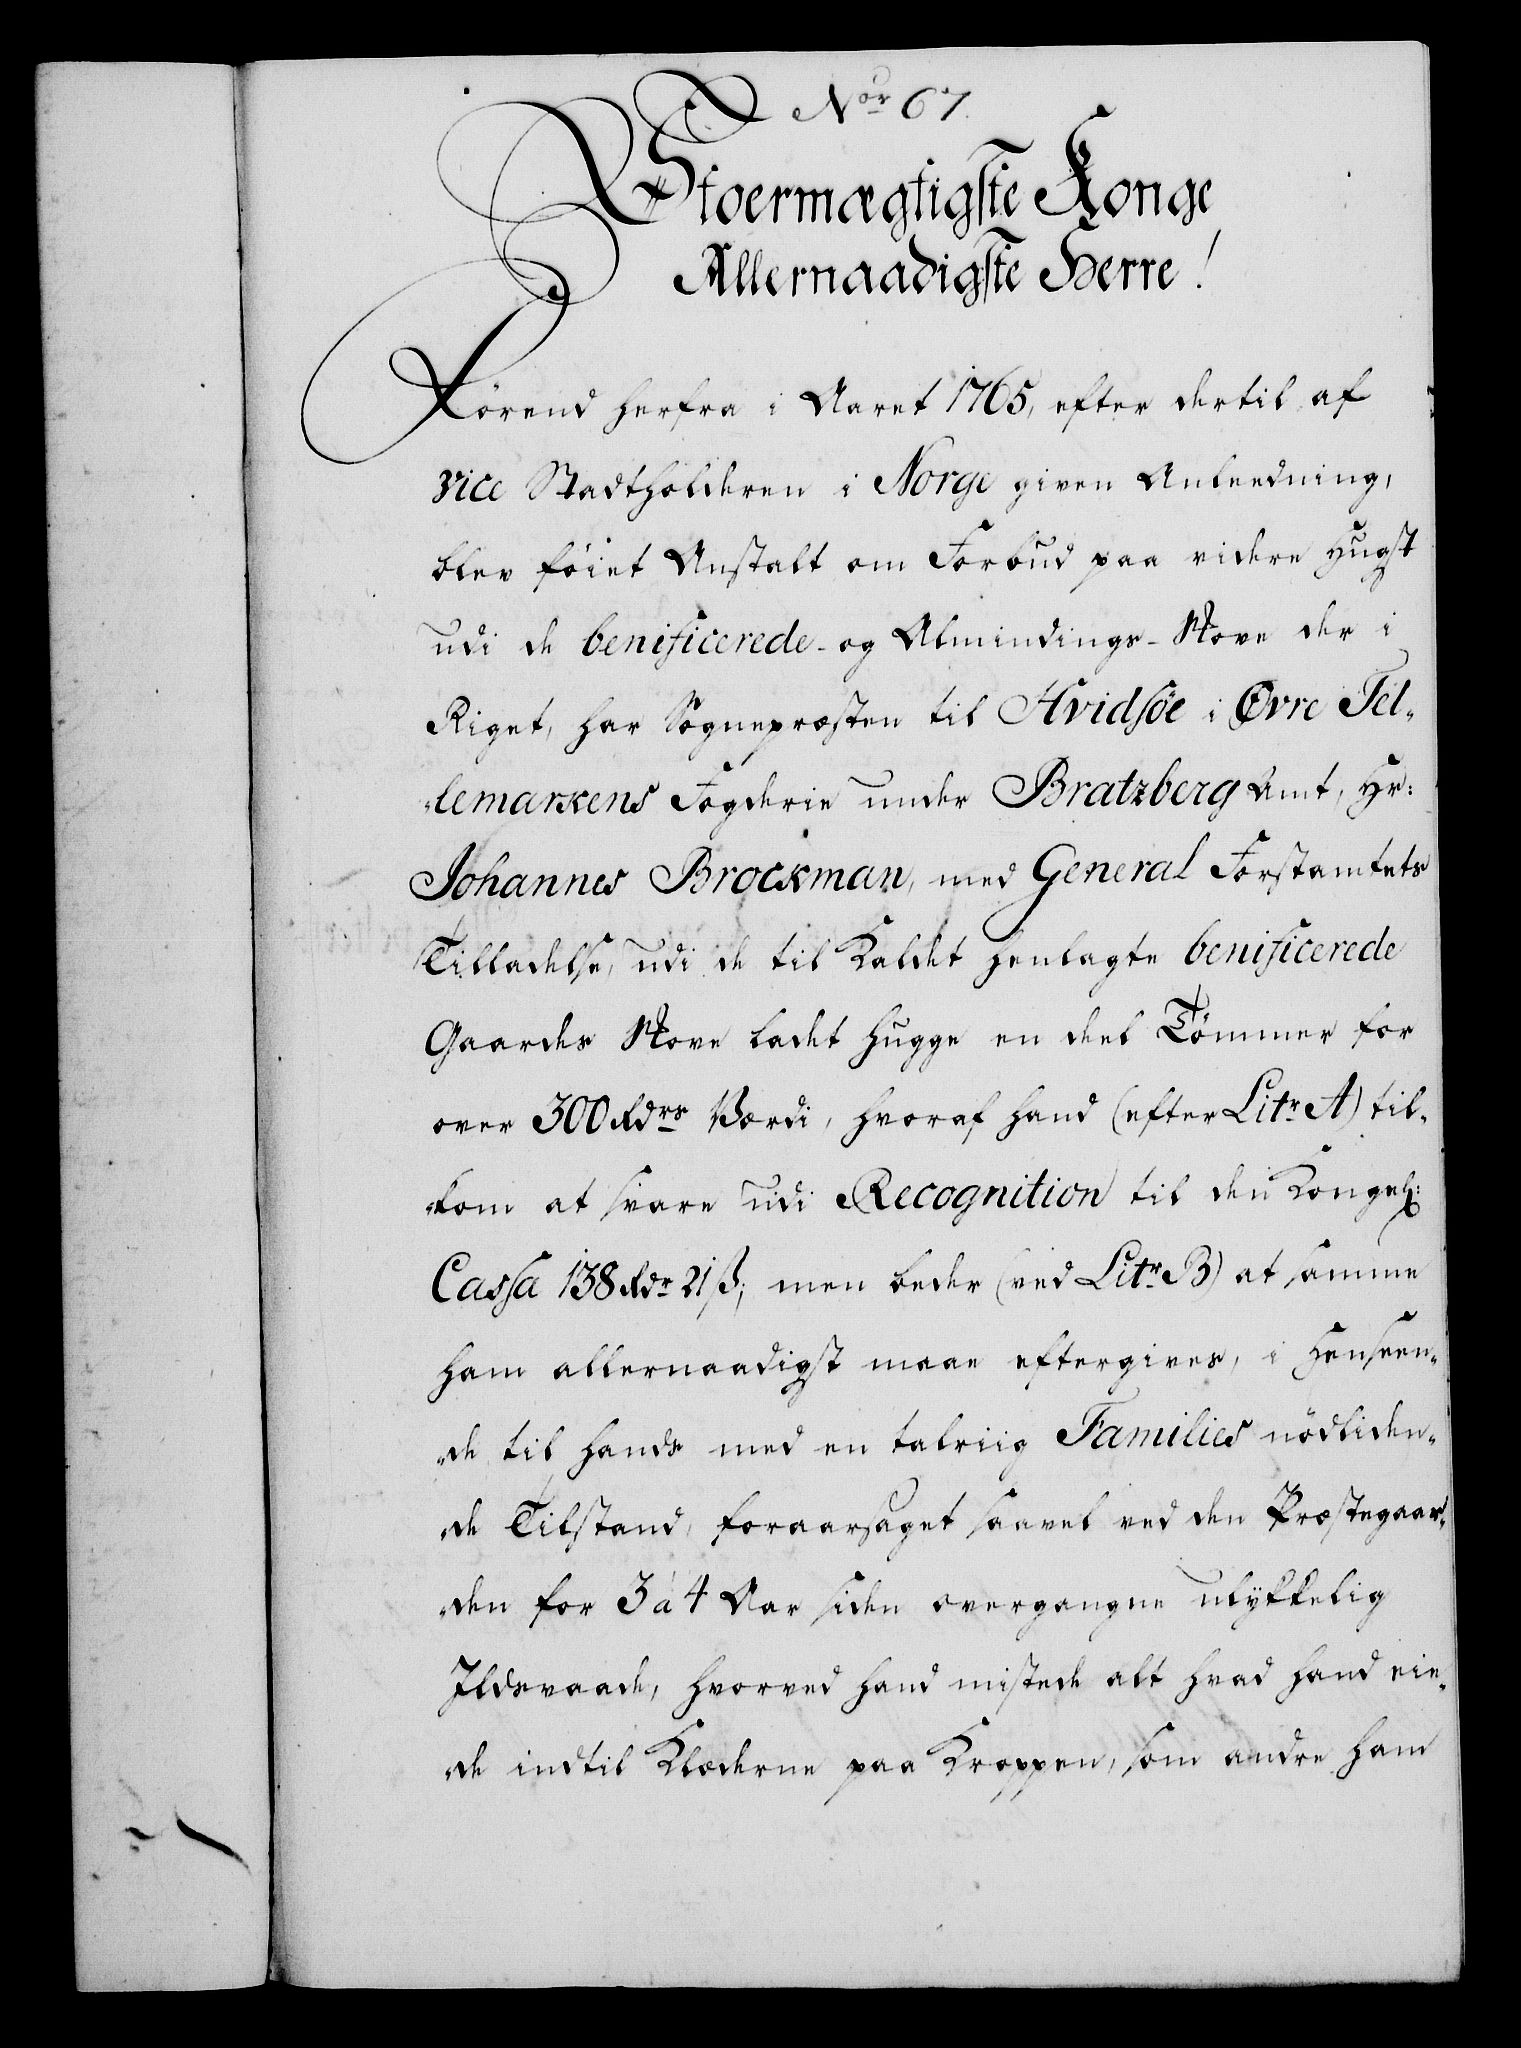 Nor 67.
Stoermægtigste Konge
Allernaadigste Herre!
Förend herfra i Aaret 1765, efter dertil af
vice Stadtholderen i Norge given Anleedning,
blev föiet Anstalt om Forbud paa videre Hugst
udi de benificerede- og Almindings-Skove der i
Riget, har Sognepræsten til Hvidsöe i Øvre Tel-
-lemarkens Fogderie under Bratzberg Amt, Hr:
Johannes Brockman, med General Forstamtets
Tilladelse, udi de til Kaldet henlagte benificerede
Gaardes Skove ladet hugge en deel Tömmer for
over 300 Rdrs Værdi, hvoraf hand (efter Litr A) til-
-kom at svare udi Recognition til den Kongel:
Cassa 138 Rdr 21 ß; men beder (ved Litr B) at samme
ham allernaadigst maae eftergives, i Henseen-
-de til hands med en talriig Families nödliden-
-de Tilstand, foraarsaget saavel ved den Præstegaar-
-den for 3 à 4 Aar siden overgangne ulÿkkelig
Ildsvaade, hvorved hand mistede alt hvad hand eie-
-de indtil Klæderne paa Kroppen, som andre ham